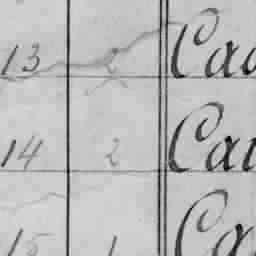 13 2 Ca
14 2 Ca
15 1 Ca